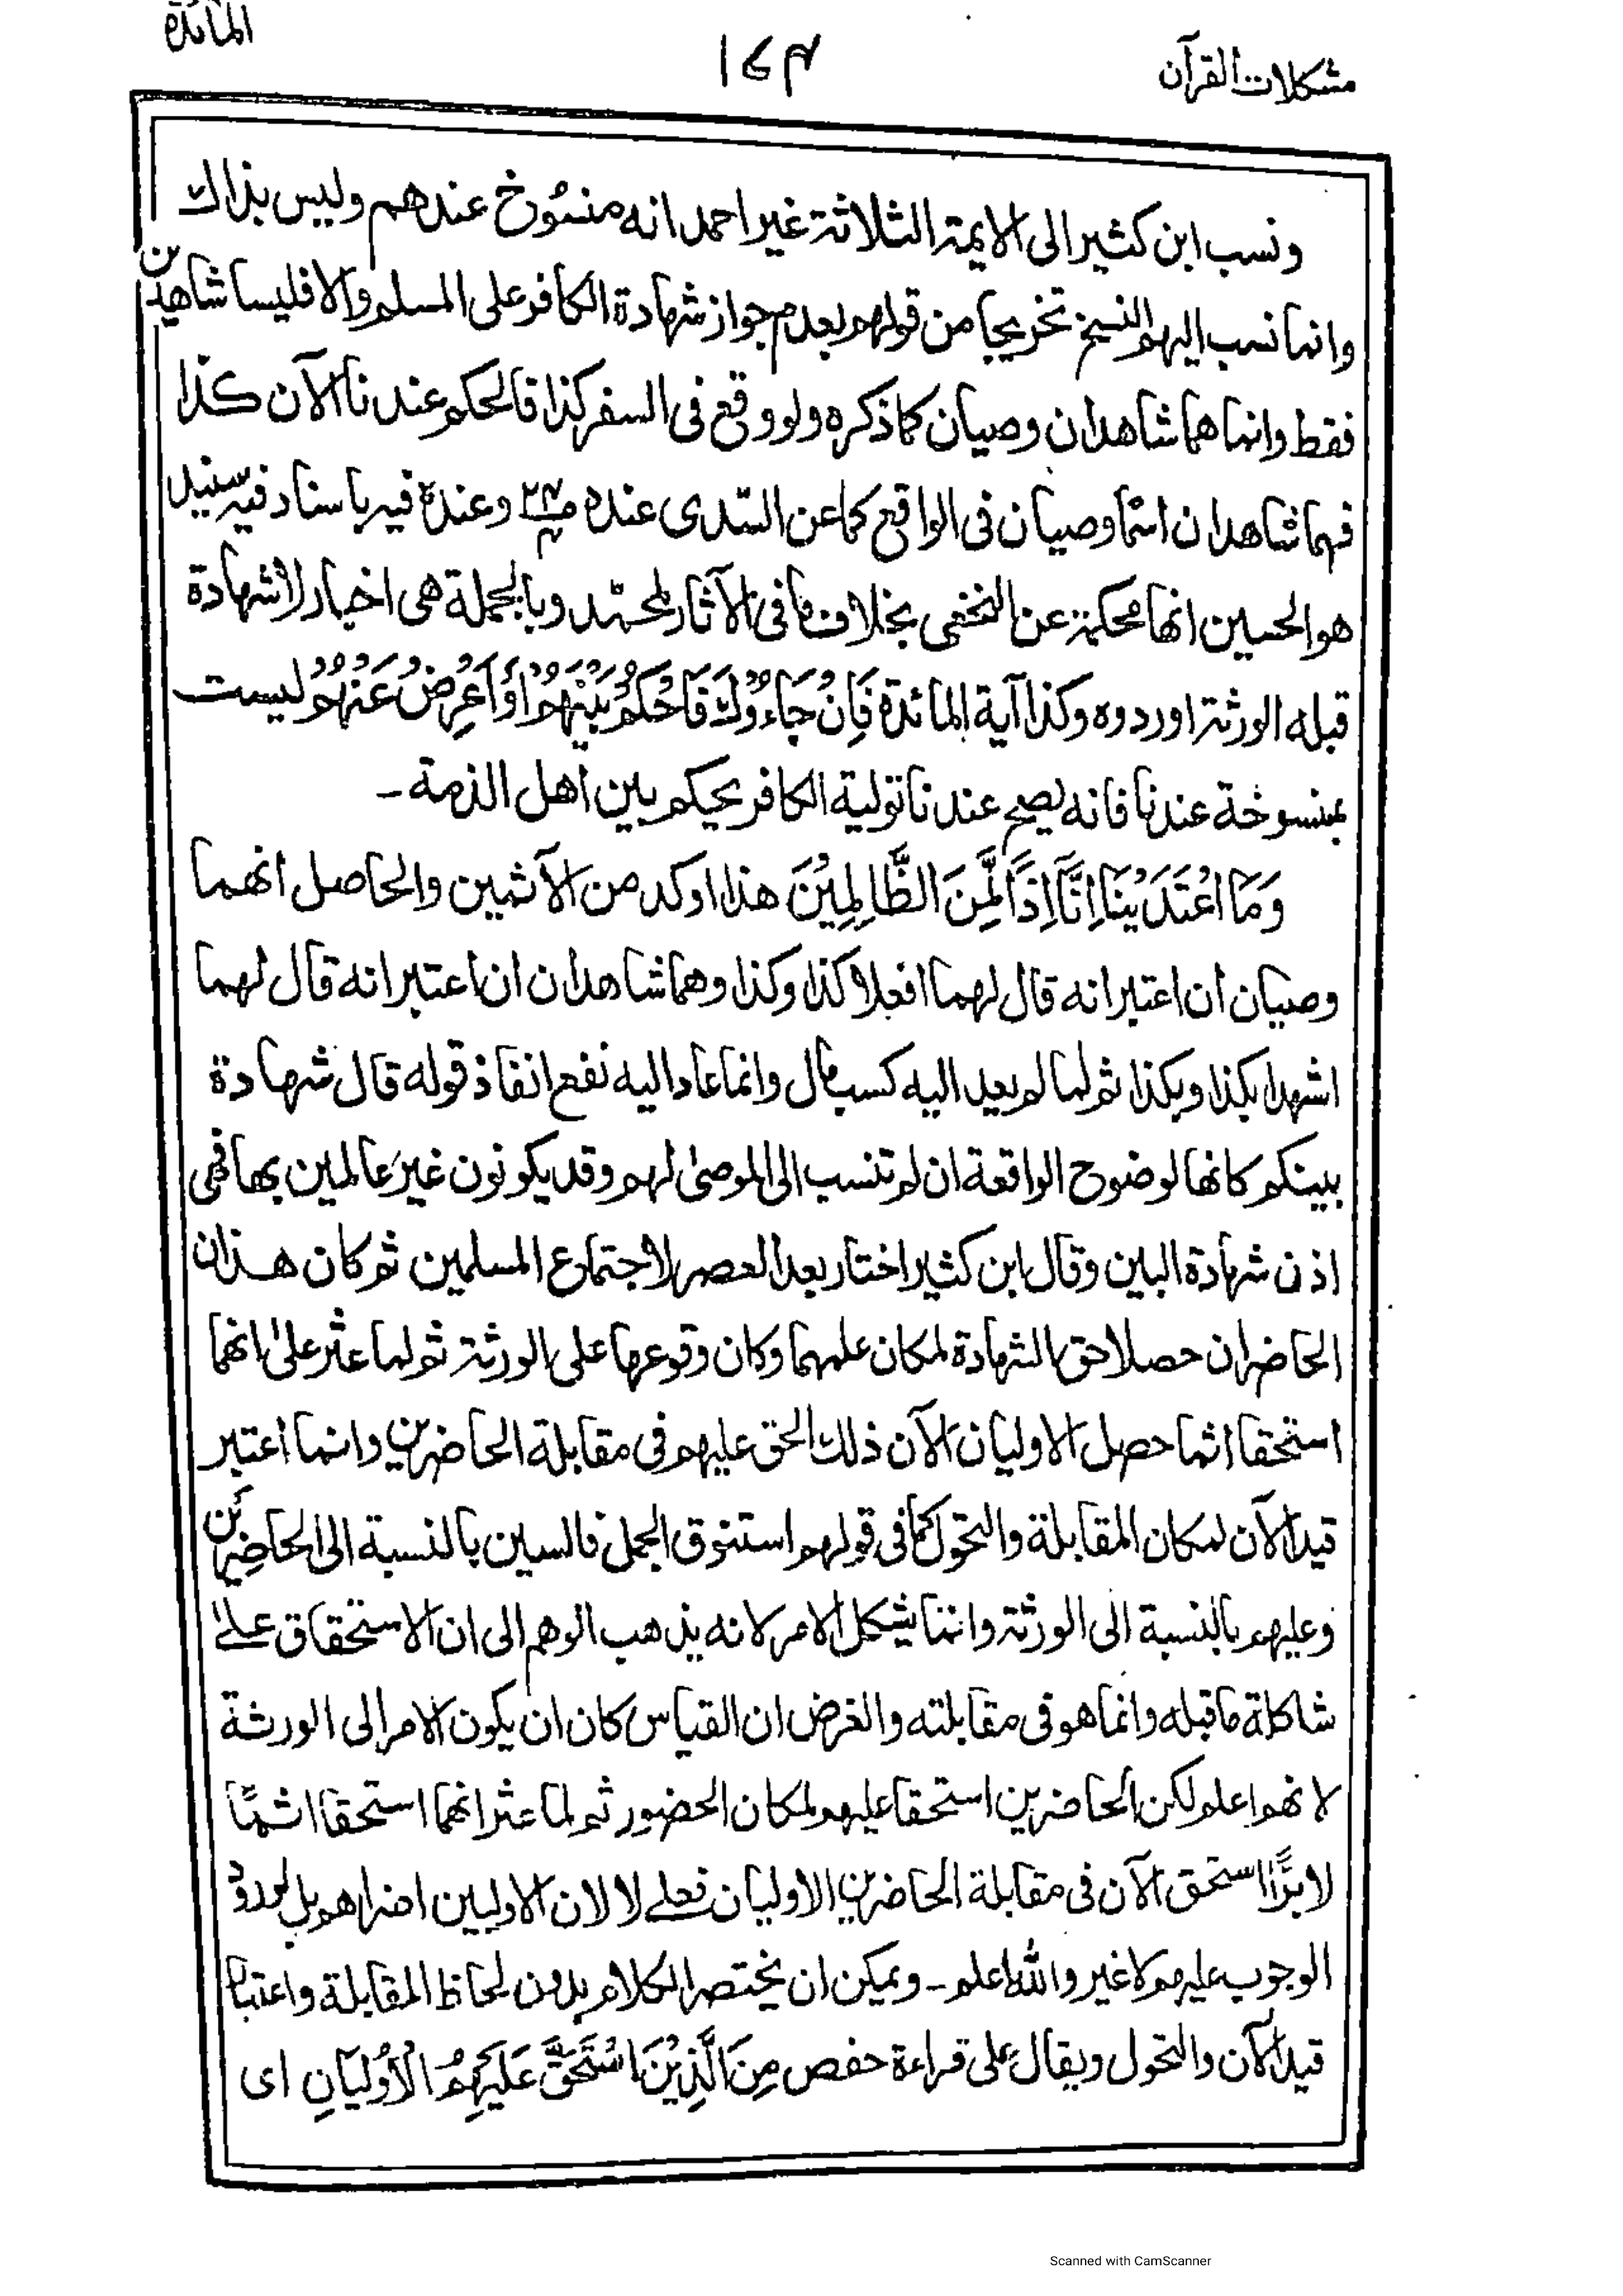 مشكلات القرآن
١٧٣
المائدة
ونسب ابن كثير الى الايمة الثلاثة غير احمد انه منسوخ عندهم وليس بذاك
وانما نسب اليهم النسخ تخريجا من قولهم بعدم جواز شهادة الكافر على المسلم والا فليسا شاهدين
فقط وانما هما شاهدان وصيان كما ذكره ولو وقع فى السفر كذا فالحكم عندنا الآن كذا
فهما شاهدان اسما وصيان فى الواقع كما عن السدى عنده وعنده فيه باسناد فيه سنيد
هو الحسين انها محكمة عن النخعى بخلاف ما فى الآثار لمحمد وبالجملة هى اخبار لا شهادة
قبله الورثة اوردوه وكذا آية المائدة فَاِنْ جَاءُوْكَ فَاحْكُمْ بَيْنَهُمْ اَوْ اَعْرِضْ عَنْهُمْ ليست
بمنسوخة عندنا فانه يصح عندنا تولية الكافر يحكم بين اهل الذمة ــ
وَمَا اعْتَدَيْنَا اِنَّا اِذًا لَّمِنَ الظَّالِمِيْنَ هذا اوكد من الآثمين والحاصل انهما
وصيان ان اعتبر انه قال لهما افعلا كذا وكذا وهما شاهدان ان اعتبر انه قال لهما
اشهدا بكذا وبكذا ثم لما لم يعد اليه كسب مال وانما عاد اليه نفع انفاذ قوله قال شهادة
بينكم كانها لوضوح الواقعة ان لم تنسب الى الموصىٰ لهم وقد يكونون غير عالمين بها فهى
اذن شهادة البين وقال ابن كثير اختار بعد العصر لاجتماع المسلمين ثم كان هذان
الحاضران حصلا حق الشهادة لمكان علمهما وكان وقوعها على الورثة ثم لما عثر علىٰ انهما
استحقا اثما حصل الاوليان الآن ذلك الحق عليهم فى مقابلة الحاضرين وانما اعتبر
قيد الآن لمكان المقابلة والتحول كما فى قولهم استنوق الجمل فالسين بالنسبة الى الحاضرين
وعليهم بالنسبة الى الورثة وانما يشكل الامر لانه يذهب الوهم الى ان الاستحقاق علےٰ
شاكلة ما قبله وانما هو فى مقابلته والغرض ان القياس كان ان يكون الامر الى الورثة
لانهم اعلم ولكن الحاضرين استحقا عليهم لمكان الحضور ثم لما عثر انهما استحقا اثمًا
لا برًّا استحق الآن فى مقابلة الحاضرين الاوليان فعلے لا لان الاوليين اضراهم بل لورود
الوجوب عليهم لا غير والله اعلم ــ ويمكن ان يختصر الكلام بدون لحاظ المقابلة واعتبار
قيد الآن والتحول ويقال على قراءة حفص مِنَ الَّذِيْنَ اسْتَحَقَّ عَلَيْهِمُ الْاَوْلَيَانِ اى
Scanned with CamScanner